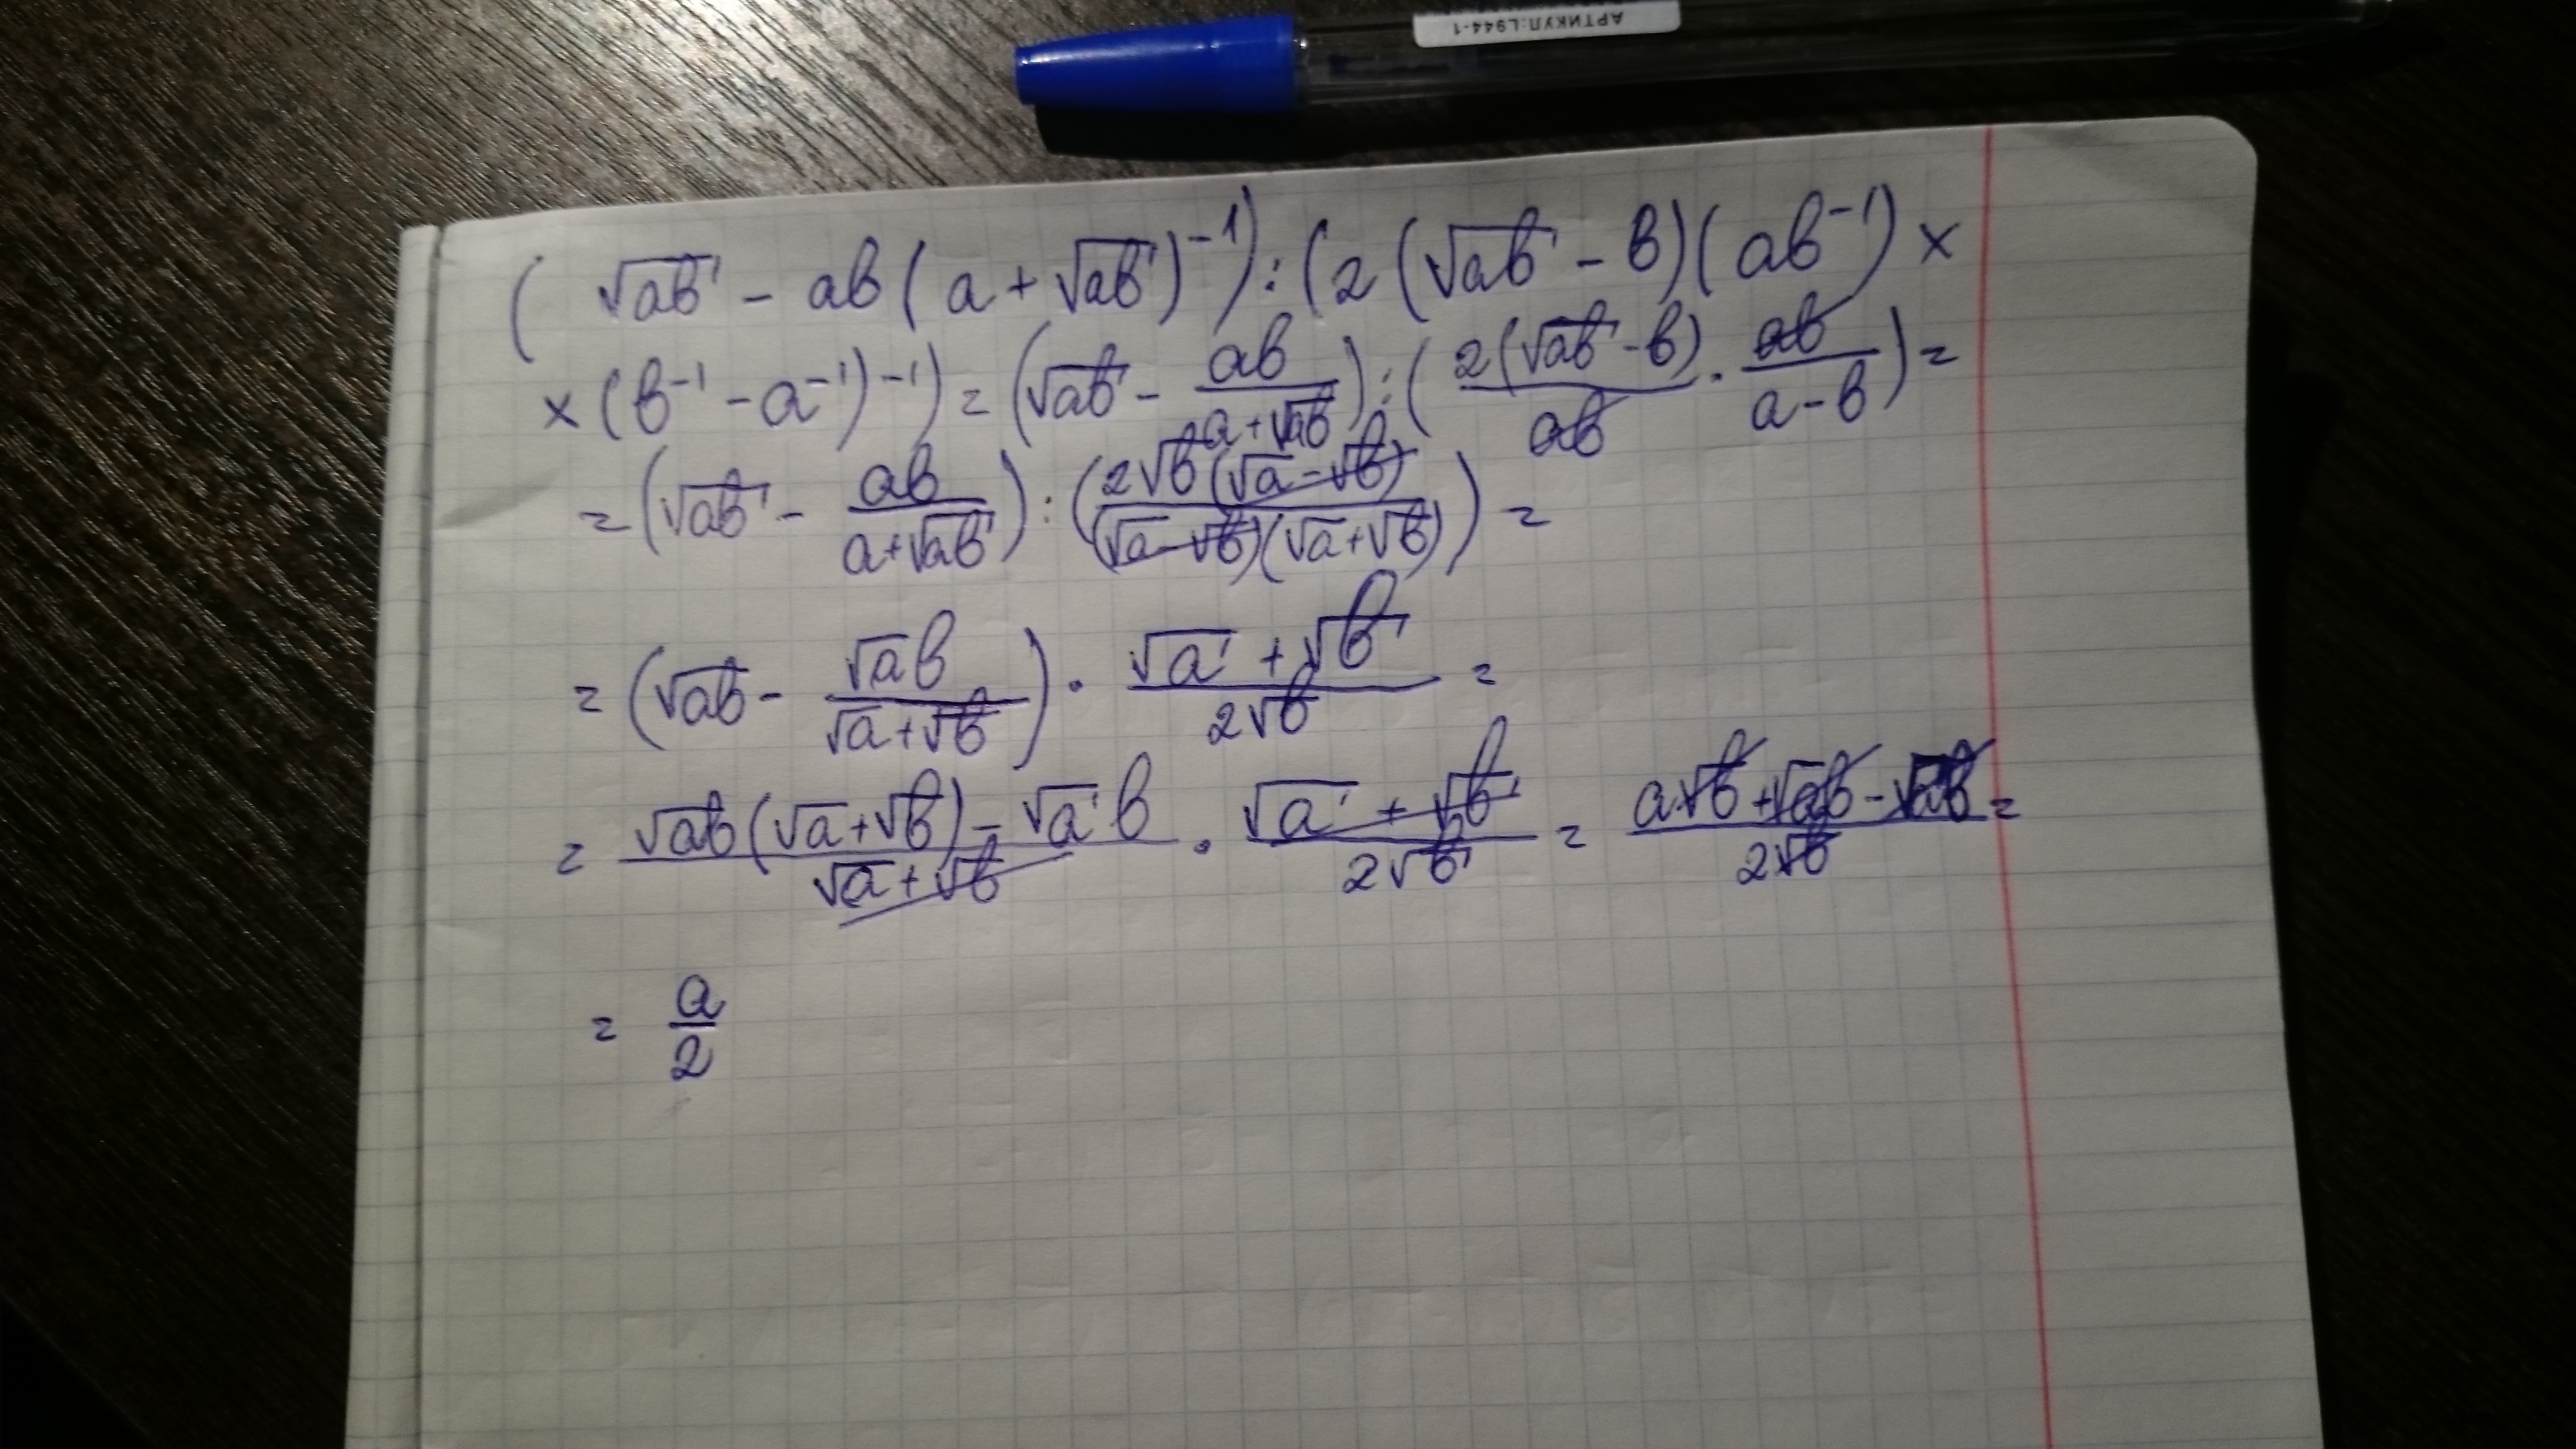 АРТИКУЛ:L944-1
( √ab - ab ( a + √ab )⁻¹ ) : ( 2 ( √ab - b ) ( ab⁻¹ ) ×
× ( b⁻¹ - a⁻¹ )⁻¹ ) = ( √ab - ab / (a + √ab) ) : ( 2(√ab - b) / ab · ab / (a - b) ) =
= ( √ab - ab / (a + √ab) ) : ( 2√b (√a - √b) / (√a - √b)(√a + √b) ) =
= ( √ab - √a b / (√a + √b) ) · (√a + √b) / 2√b =
= (√ab (√a + √b) - √a b) / (√a + √b) · (√a + √b) / 2√b = (a√b + √a b - √a b) / 2√b =
= a / 2